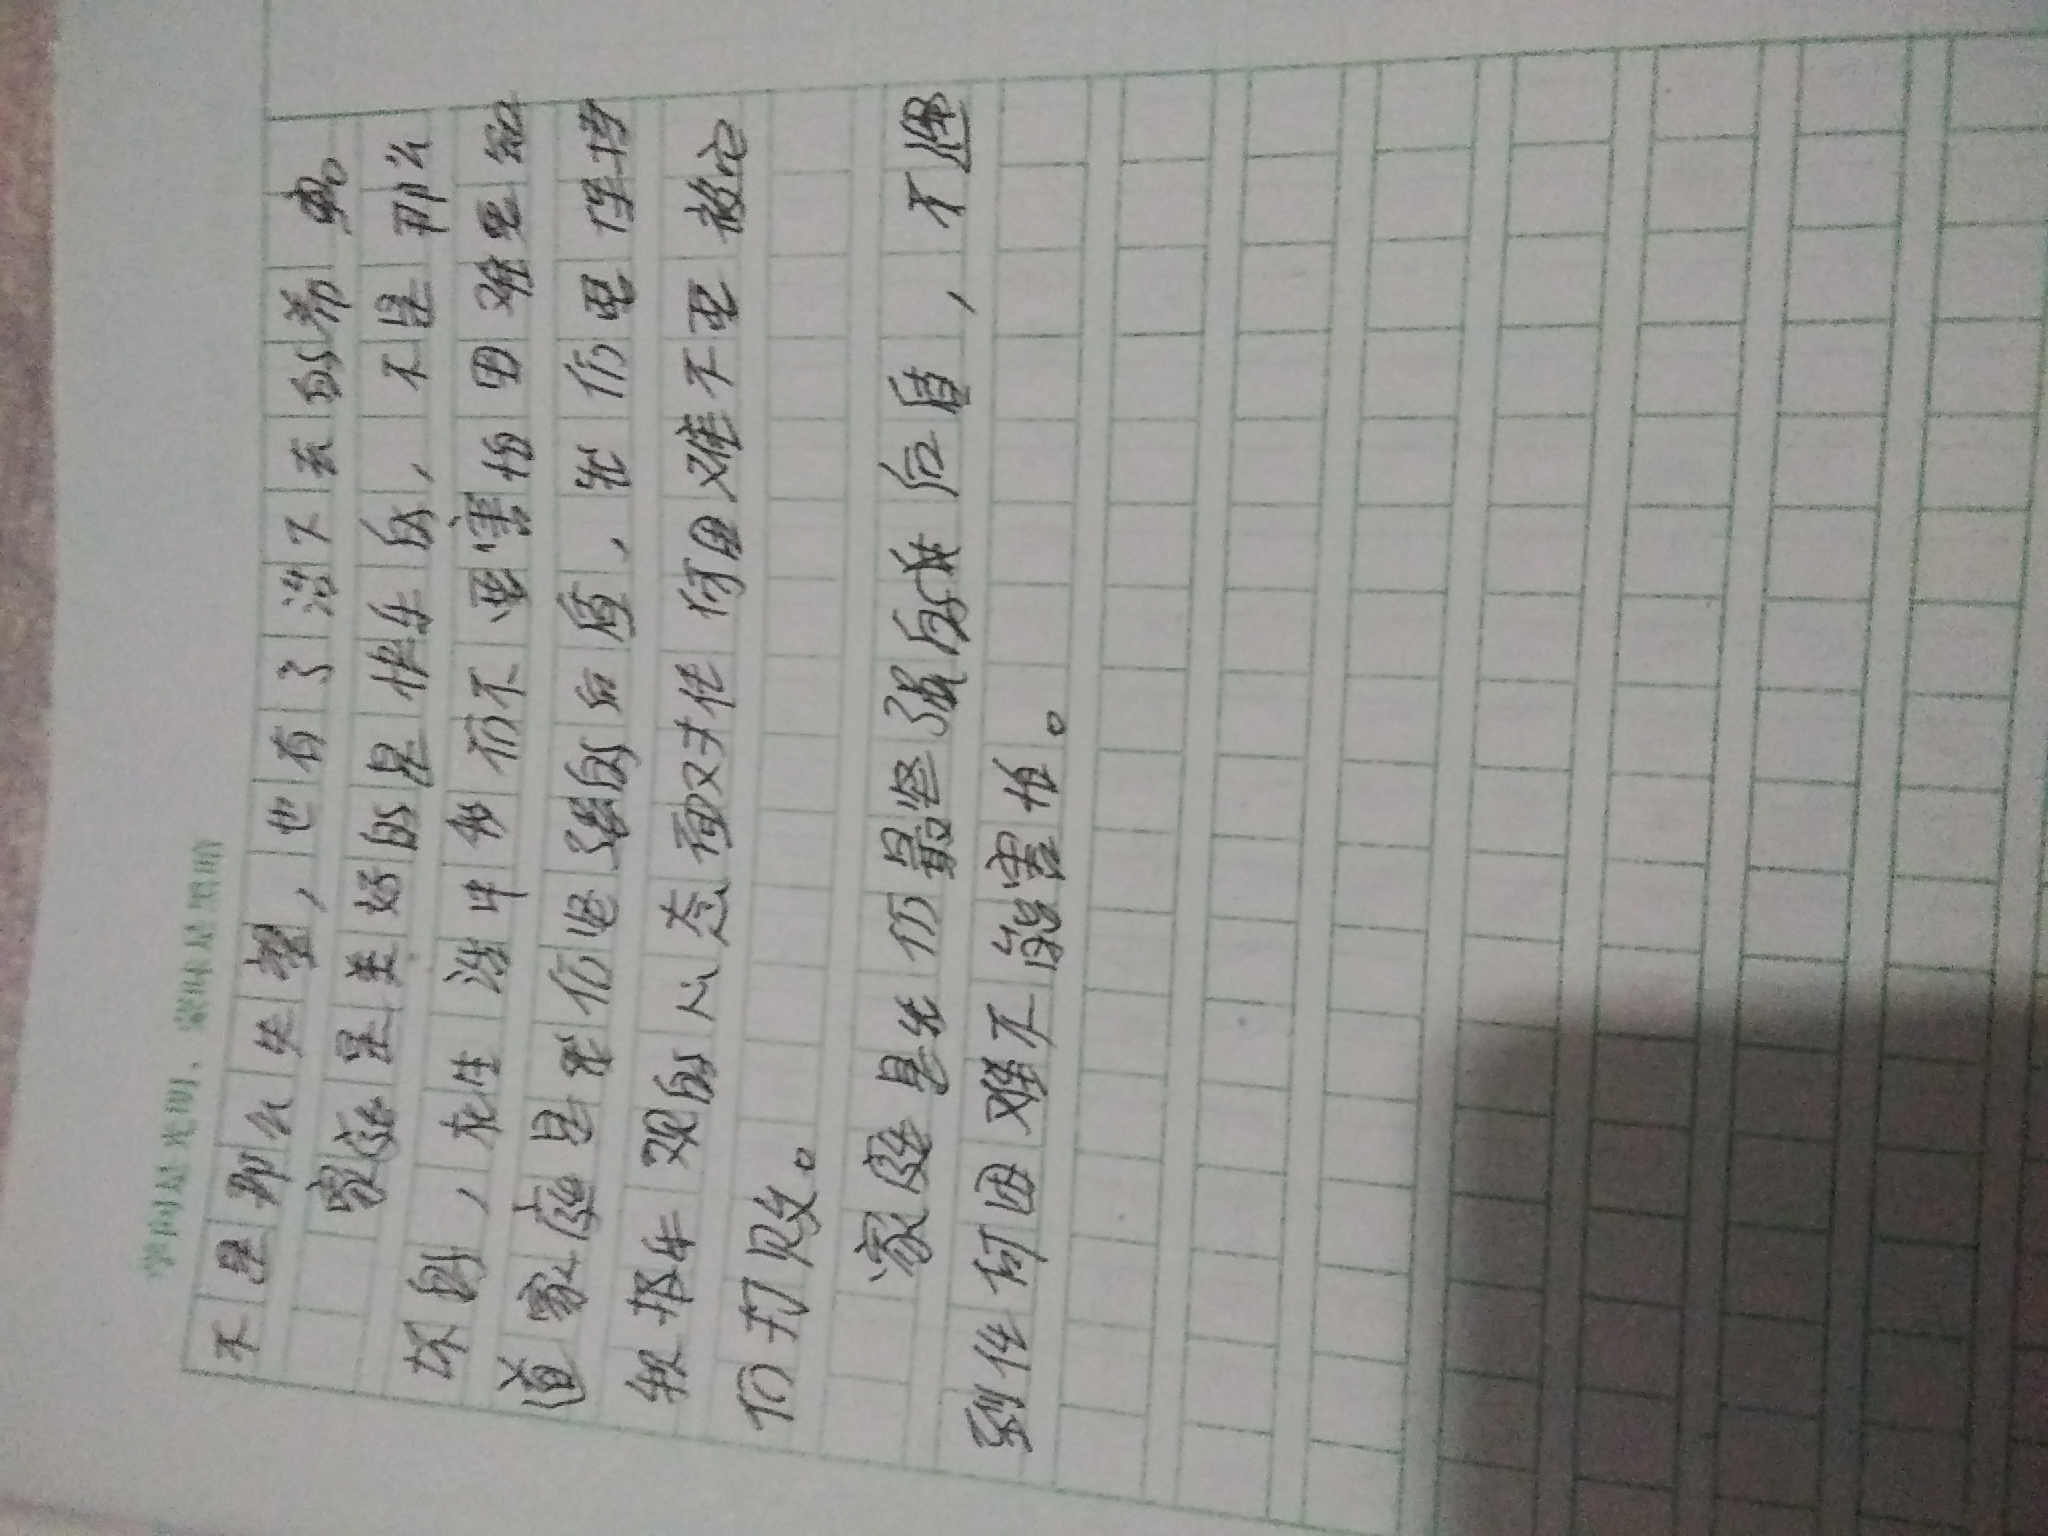 学问是光明，蒙昧是黑暗
不是那么失望，也有了活下去的希
家庭是美好的是快乐的，不是那么
坏的，在生活中我们不要害怕困难要知
道家庭是我们坚强的后盾，我们要保持
积极乐观的心态面对任何困难不要被它
们打败。
家庭是我们最坚强的后盾，不遇
到任何困难不能害怕。